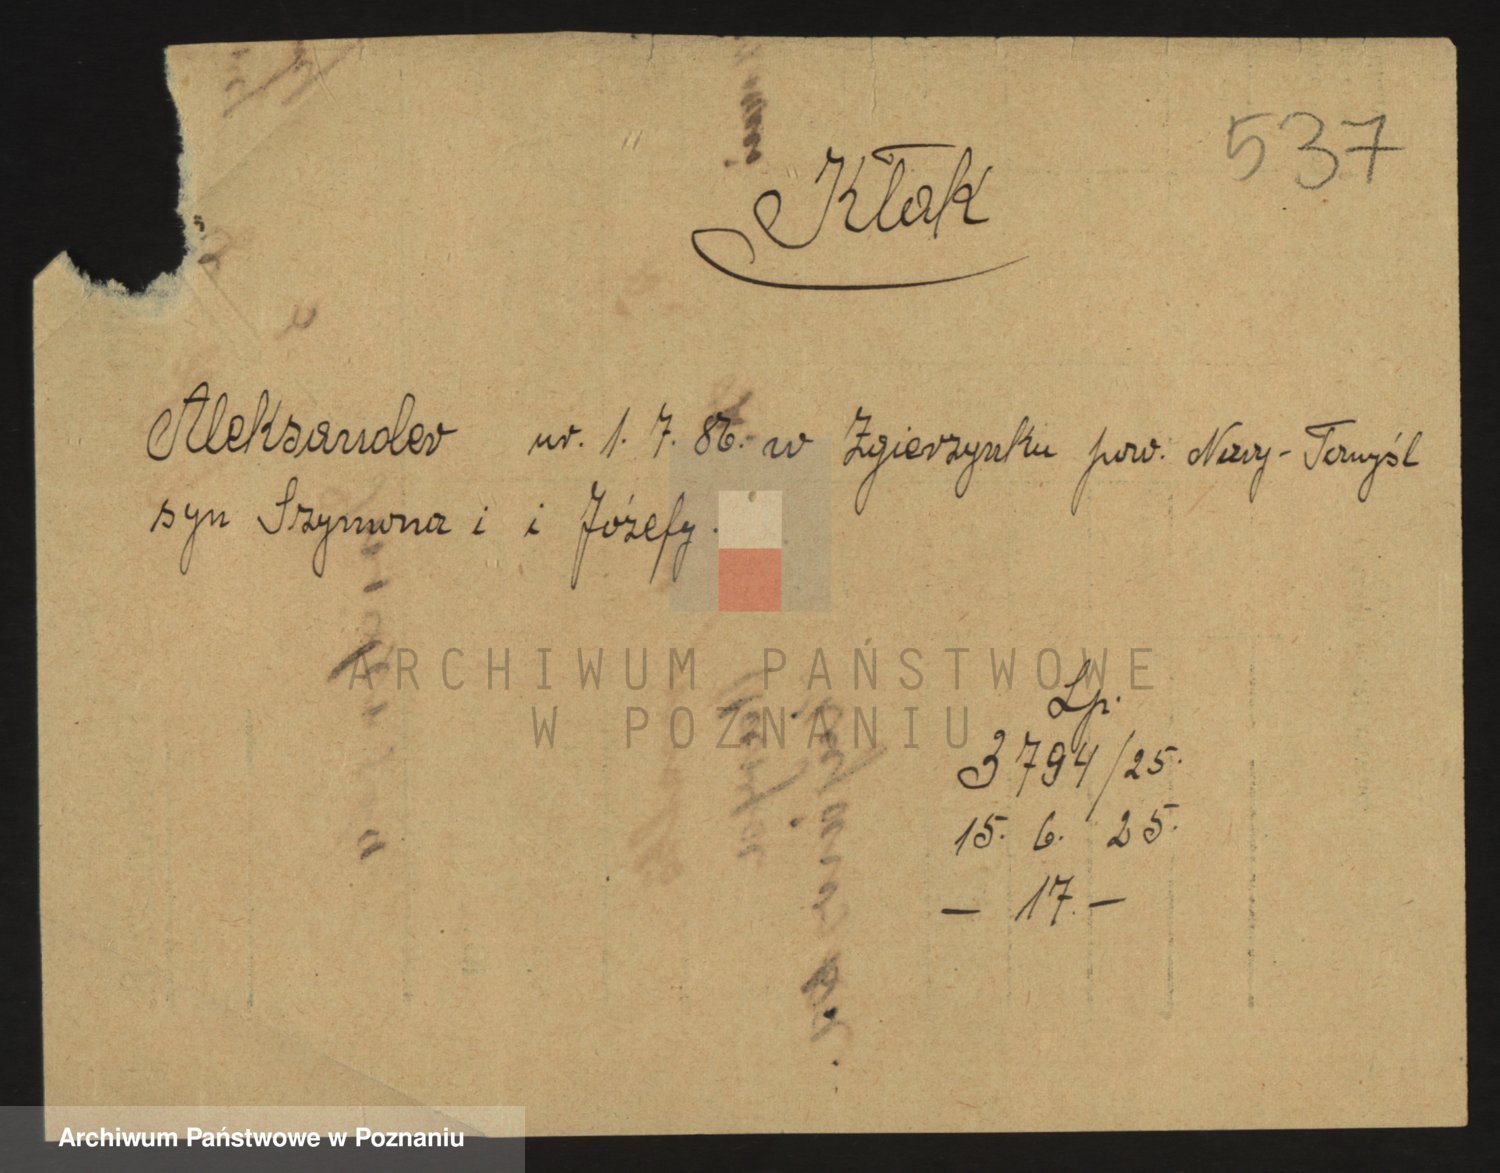 537
Kłak
Aleksander ur. 1. 7. 86. w Zgierzynku pow. Nowy-Tomyśl
syn Szymona i i Józefy.
ARCHIWUM PAŃSTWOWE
W POZNANIU
Lp.
3794/25.
15. 6. 25.
- 17. -
Archiwum Państwowe w Poznaniu